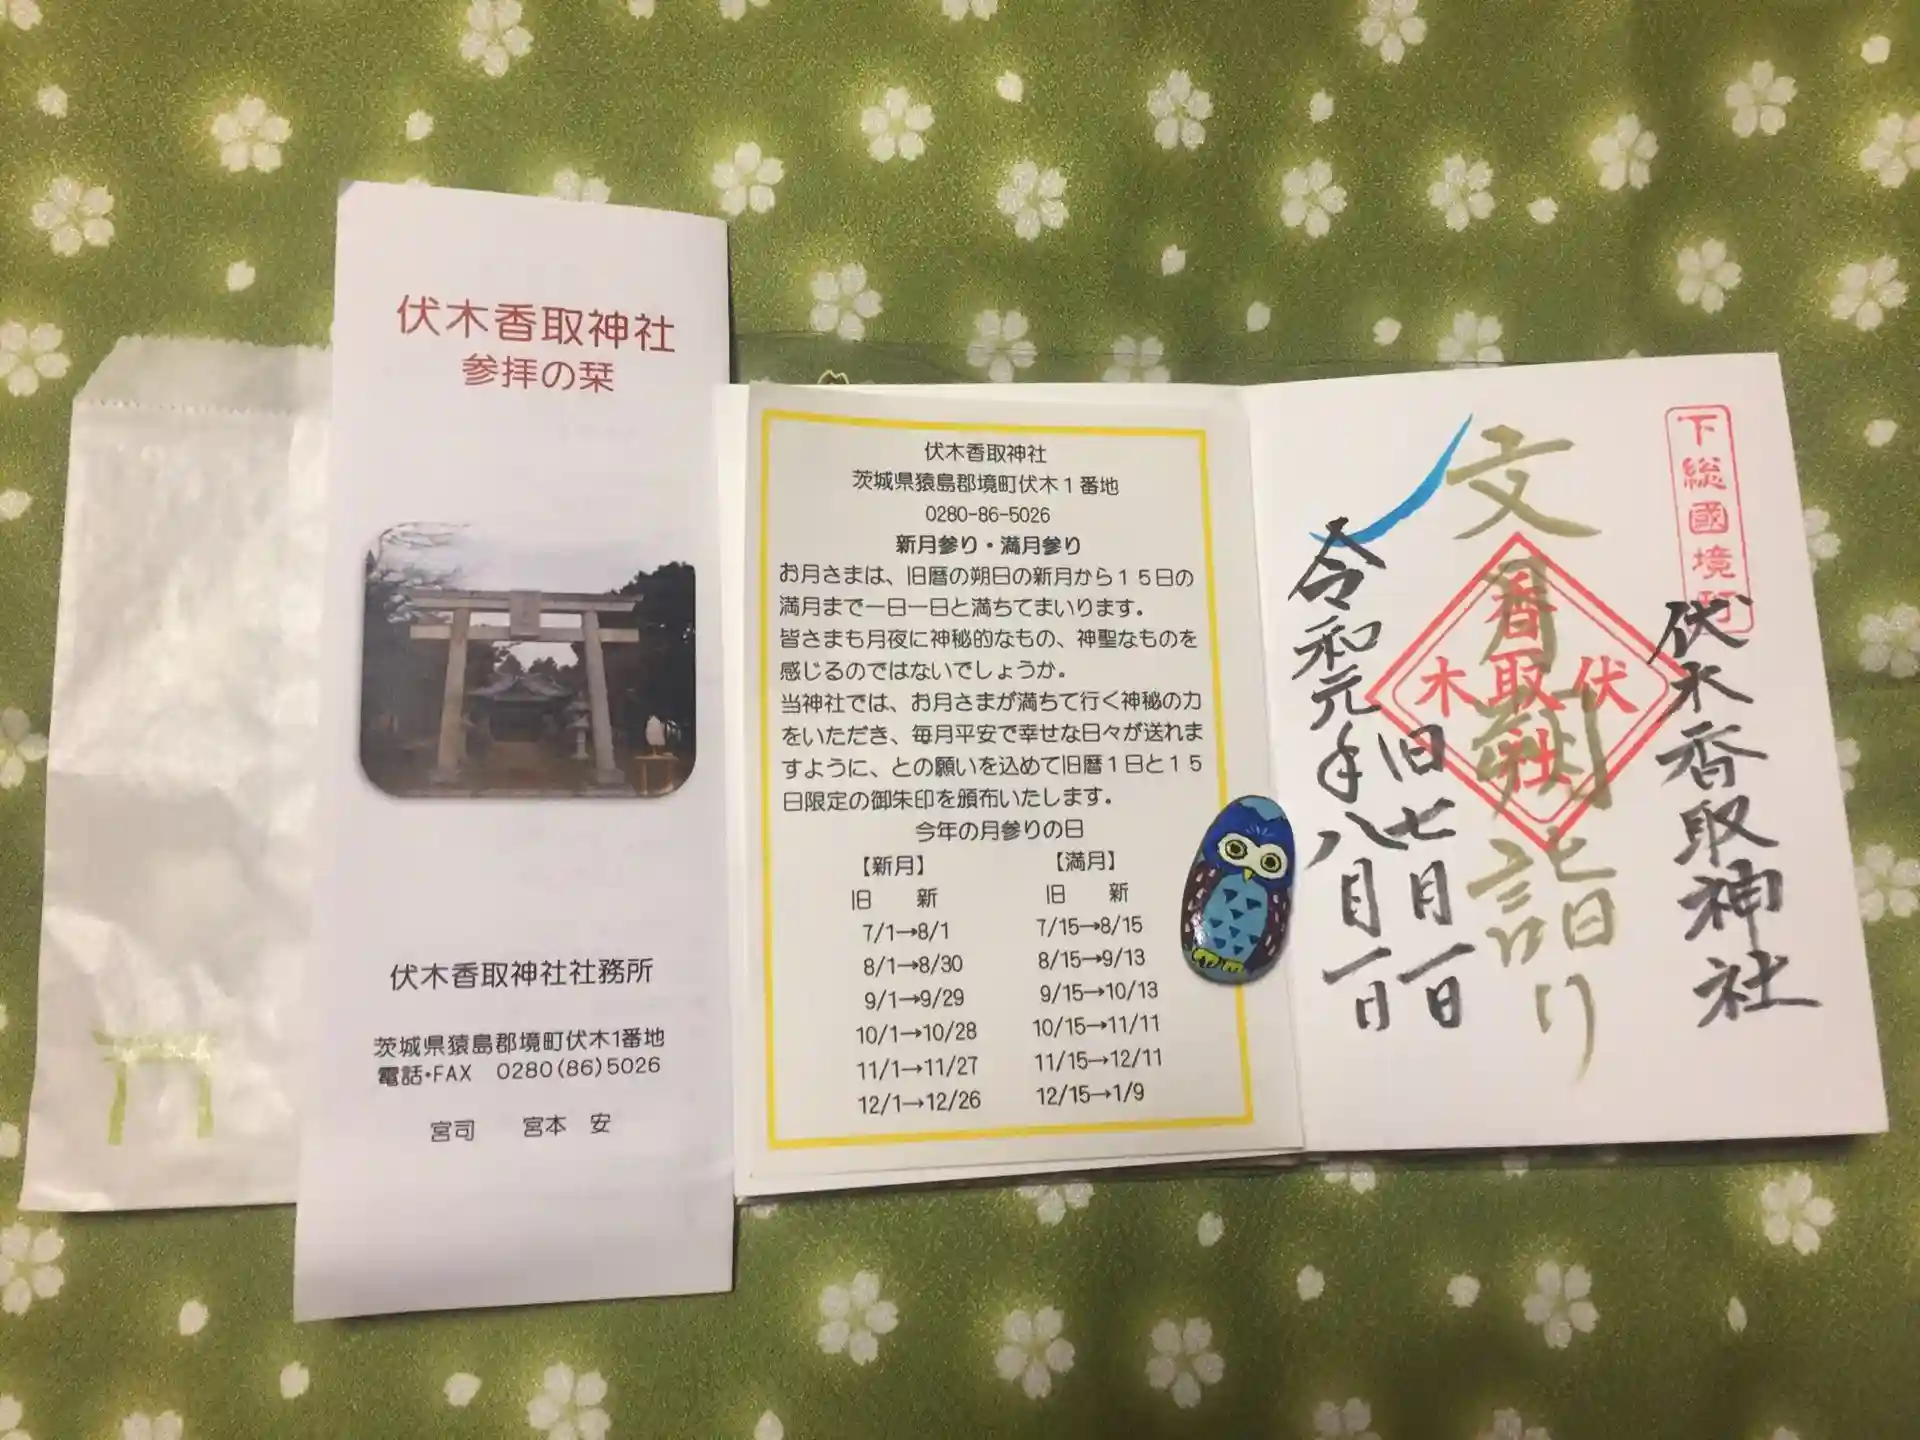 伏木香取神社
参拝の栞
伏木香取神社社務所
茨城県猿島郡境町伏木1番地
電話・FAX 0280(86)5026
宮司 宮本 安
伏木香取神社
茨城県猿島郡境町伏木1番地
0280-86-5026
新月参り・満月参り
お月さまは、旧暦の朔日の新月から15日の
満月まで一日一日と満ちてまいります。
皆さまも月夜に神秘的なもの、神聖なものを
感じるのではないでしょうか。
当神社では、お月さまが満ちて行く神秘の力
をいただき、毎月平安で幸せな日々が送れま
すように、との願いを込めて旧暦1日と15
日限定の御朱印を頒布いたします。
今年の月参りの日
【新月】 【満月】
旧 新 旧 新
7/1→8/1 7/15→8/15
8/1→8/30 8/15→9/13
9/1→9/29 9/15→10/13
10/1→10/28 10/15→11/11
11/1→11/27 11/15→12/11
12/1→12/26 12/15→1/9
下総國境町
伏木香取神社
文月朔詣り
伏木
香取
社
旧七月一日
令和元年八月一日